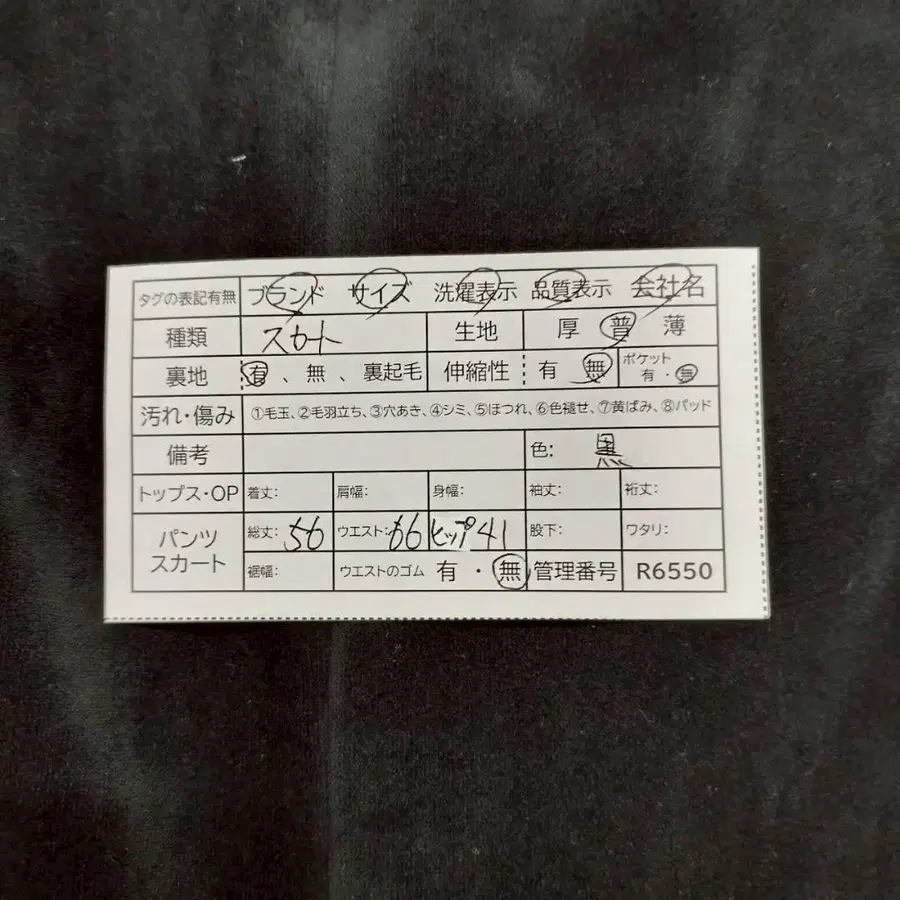 タグの表記有無 ブランド サイズ 洗濯表示 品質表示 会社名
種類 スカート 生地 厚 普 薄
裏地 有、無、裏起毛 伸縮性 有 無 ポケット 有・無
汚れ・傷み ①毛玉、②毛羽立ち、③穴あき、④シミ、⑤ほつれ、⑥色褪せ、⑦黄ばみ、⑧パッド
備考 色: 黒
トップス・OP 着丈: 肩幅: 身幅: 袖丈: 裄丈:
パンツ スカート 総丈: 56 ウエスト: 66 ヒップ 41 股下: ワタリ:
裾幅: ウエストのゴム 有・無 管理番号 R6550